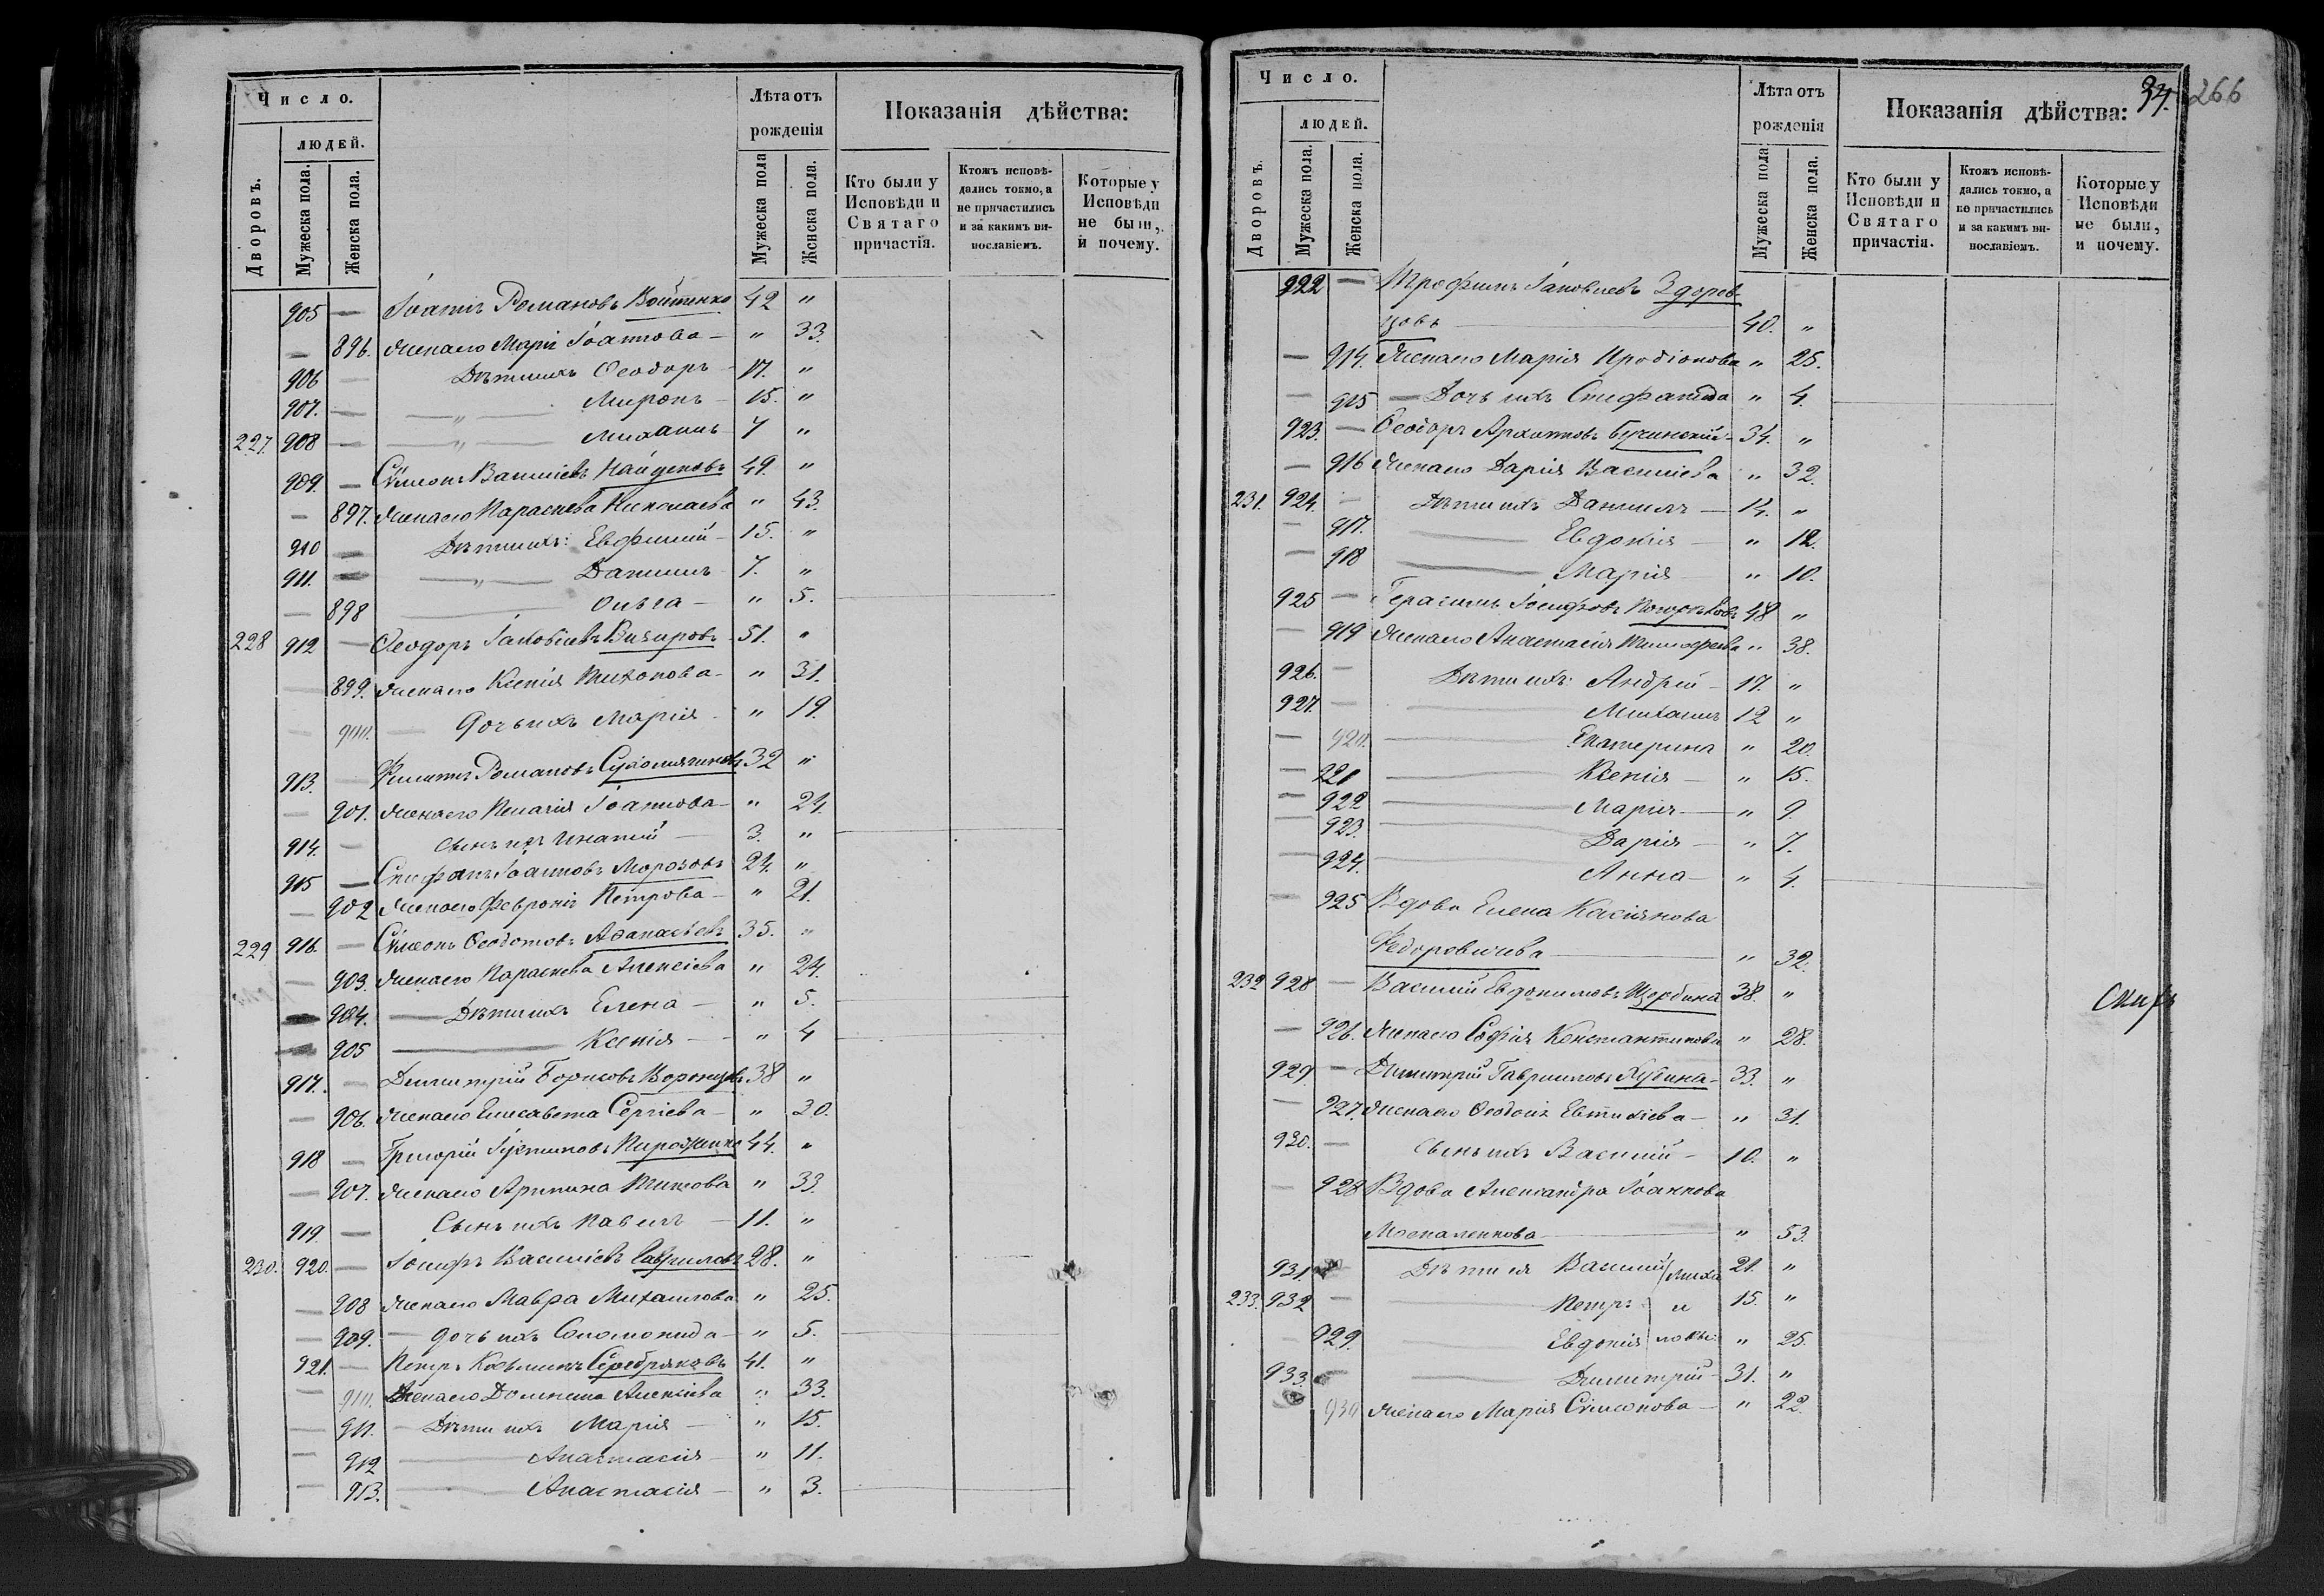 Число.
людей.
Дворовъ.
Мужеска пола.
Женска пола.
Лѣта отъ рожденія
Мужеска пола
Женска пола.
Показанія дѣйства:
Кто были у Исповѣди и Святаго причастія.
Ктожъ исповѣдались токмо, а не причастились и за какимъ винословіемъ.
Которые у Исповѣди не были, и почему.
905 — Іоаннъ Романовъ Войтенко 42 "
— 896. Жена его Марія Іоаннова — " 33.
906 — Дѣти ихъ Ѳеодоръ — 17. "
907. — — " — Миронъ — 15. "
227. 908 — — " — Михаилъ — 7 "
909. — Сѵмеонъ Василіевъ Найденовъ 49. "
— 897. Жена его Параскева Николаева " 43.
910 — Дѣти ихъ: Евфимій — 15. "
911. — — " — Даніилъ 7. "
— 898 — Ольга — " 5.
228 912 — Ѳеодоръ Іаковлевъ 51. "
— 899. Жена его Ксенія Тихонова — " 31.
— 900. — Дочь ихъ Марія — " 19.
913. — Филиппъ Романовъ 32 "
— 901. Жена его Пелагія Іоаннова — " 24.
914. — Сынъ ихъ Игнатій — 3. "
915 — Стефанъ Іоанновъ Морозовъ 24. "
— 902 Жена его Февронія Петрова — " 21.
229 916. — Сѵмеонъ Ѳеодотовъ Аѳанасьевъ 35. "
— 903. Жена его Параскева Алексіева " 24.
— 904. — Дѣти ихъ Елена — " 5.
— 905 — Ксенія — " 4
917. — Димитрій Борисовъ Воронцовъ 38 "
— 906. Жена его Елисавета Сергіева — " 30.
918 — Григорій Іустиновъ 44. "
— 907. Жена его Агрипина Титова " 33.
919 — Сынъ ихъ Павелъ — 11. "
230. 920. — Іосифъ Василіевъ Гавриловъ 28. "
— 908 Жена его Мавра Михаилова " 25.
— 909. — Дочь ихъ Соломонида — " 5.
921. — Петръ Козьминъ Серебряковъ 41. "
— 910. Жена его Домникія Алексіева " 33.
— 911. — Дѣти ихъ Марія — " 15.
— 912 — Анастасія — " 11.
— 913. — Анастасія — " 3.
34. 266
Число.
людей.
Дворовъ.
Мужеска пола.
Женска пола.
Лѣта отъ рожденія
Мужеска пола
Женска пола.
Показанія дѣйства:
Кто были у Исповѣди и Святаго причастія.
Ктожъ исповѣдались токмо, а не причастились и за какимъ винословіемъ.
Которые у Исповѣди не были, и почему.
922 — Трофимъ Іаковлевъ Здорев
цовъ — 40. "
— 914. Жена его Марія Иродіонова " 25.
— 915 — Дочь ихъ Епифанида " 4.
923. — Ѳеодоръ Архиповъ Бучинскій — 34. "
— 916 Жена его Дарія Василіева " 32.
231. 924. — Дѣти ихъ Даніилъ — 14. "
— 917. — Евдокія — " 12.
— 918 — Марія — " 10.
925 — Герасимъ Іосифовъ 48 "
— 919 Жена его Анастасія Тимофеева " 38.
926. — Дѣти ихъ: Андрей — 17. "
927. — Михаилъ 12 "
— 920. — Екатерина " 20.
— 921 — Ксенія — " 15.
— 922 — Марія — " 9.
— 923. — Дарія — " 7.
— 924. — Анна — " 4.
— 925 Вдова Елена Касіянова
Федоровичева — " 32.
232 928 — Василій Евдокимовъ Щербина 38. "
— 926. Жена его Софія Константинова " 28.
929. — Димитрій Гавриловъ Яубина — 33. "
— 927. Жена его Ѳеодосія Евтихіева — " 31.
930. — Сынъ ихъ Василій — 10. "
— 928 Вдова Александра Іоаннова
Москаленкова — " 53.
931. Дѣти ея Василій 21. "
233. 932 — Петръ 15. "
— 929. — Евдокія " 25.
933. — Димитрій — 31. "
930 Жена его Марія Сѵмеонова — " 22.